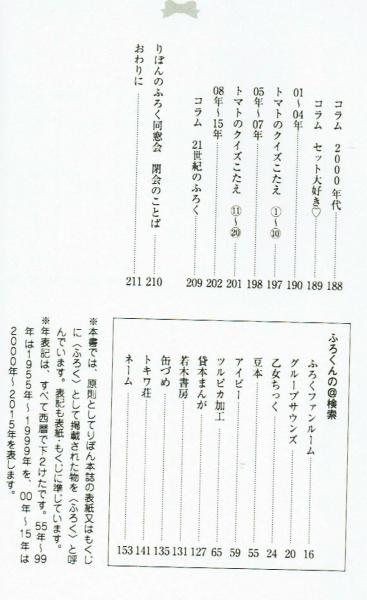 コラム　2000年代　188
コラム　セット大好き♡　189
01～04年　190
トマトのクイズこたえ　①～⑩　197
05年～07年　198
トマトのクイズこたえ　⑪～⑳　201
08年～15年　202
コラム　21世紀のふろく　209
りぼんのふろく同窓会　閉会のことば　210
おわりに　211
ふろくんの@検索
ふろくファンルーム　16
グループサウンズ　20
乙女ちっく　24
豆本　55
アイビー　59
ツルピカ加工　65
貸本まんが　127
若木書房　131
缶づめ　135
トキワ荘　141
ネーム　153
※本書では、原則としてりぼん本誌の表紙又はもくじ
に〈ふろく〉として掲載された物を〈ふろく〉と呼
んでいます。表記も表紙・もくじに準じています。
※年表記は、すべて西暦で下2けたです。55年～99
年は1955年～1999年を、00年～15年は
2000年～2015年を表します。